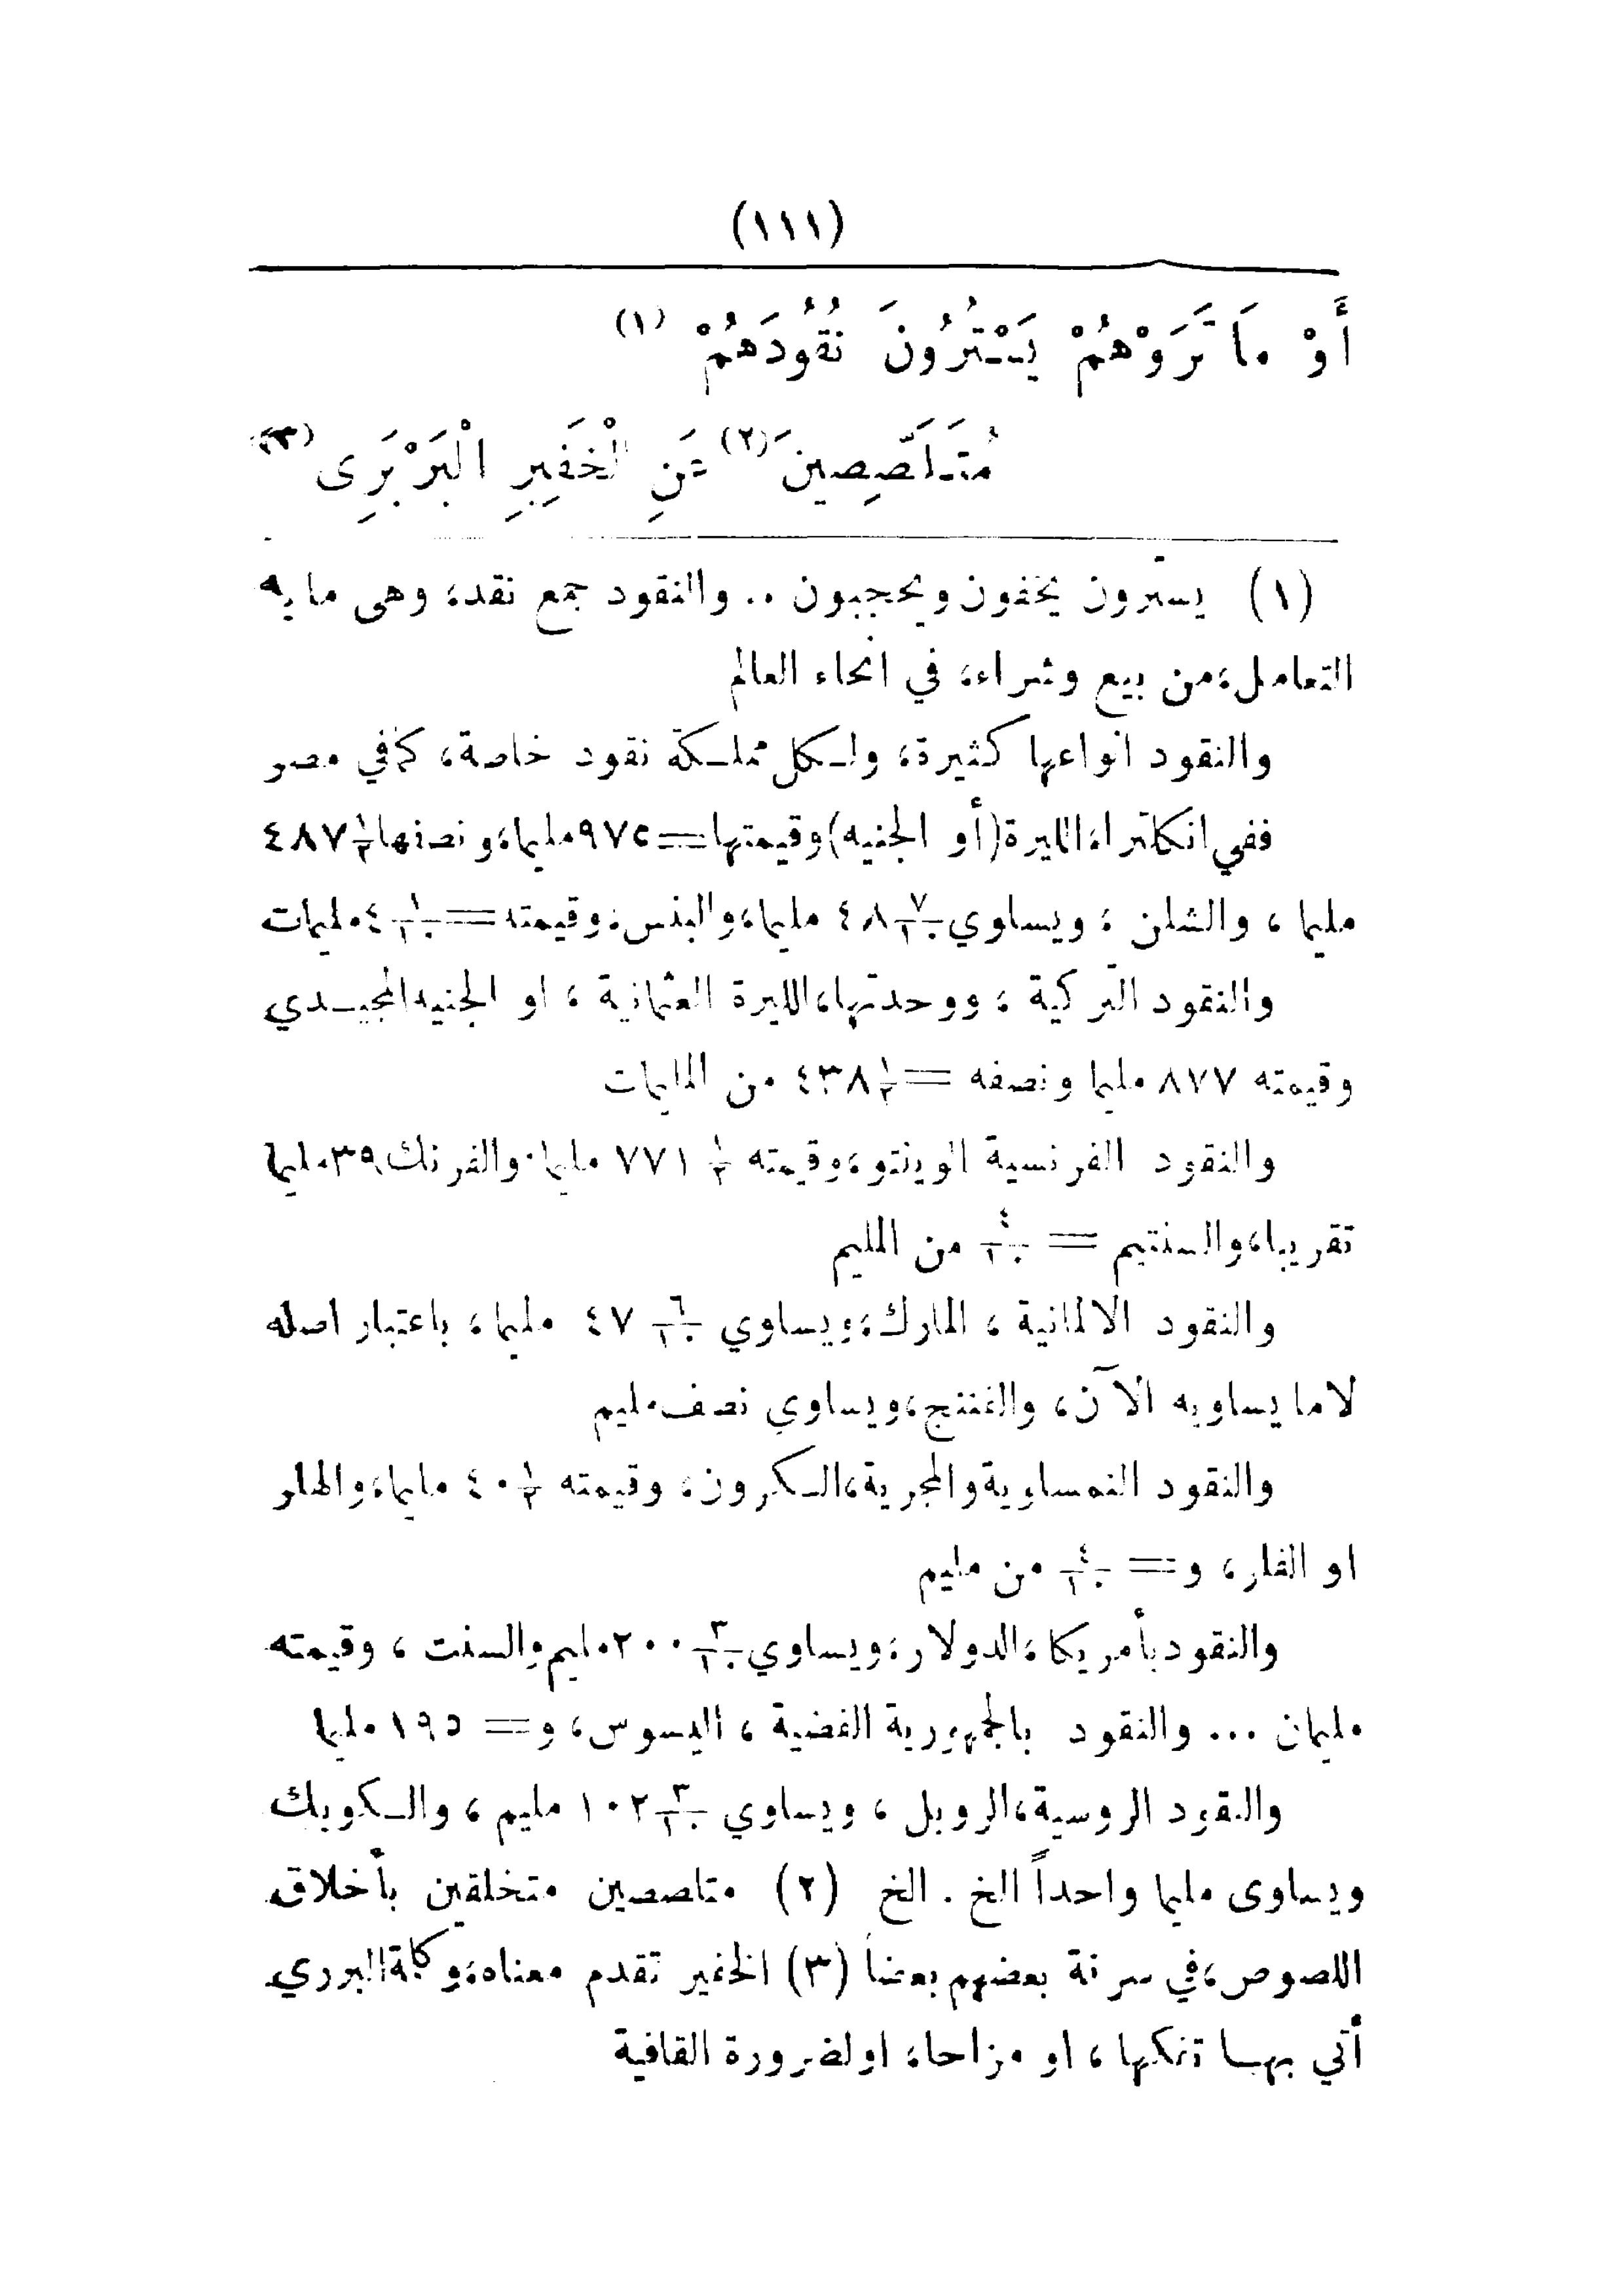 (١١١)
أَوْ مَا تَرَوْهُمْ يَسْتُرُونَ نُقُودَهُمْ (١)
مُتَلَصِّصِينَ (٢) عَنِ الْخَفِيرِ الْبَرْبَرِى (٣)
(١) يسترون يخفون ويحجبون .. والنقود جمع نقد، وهى ما به
التعامل، من بيع وشراء، في انحاء العالم
والنقود انواعها كثيرة، ولكل مملكة نقود خاصة، كمافي مصر
ففي انكلترا، الليرة (أو الجنيه) وقيمتها = ٩٧٥ مليما، ونصفها ١/٢ ٤٨٧
مليما ، والشلن ، ويساوي ٧/١٠ ٤٨ مليما، والبنس، وقيمته = ١/١٠ ٤ مليمات
والنقود التركية ، ووحدتها، الليرة العثمانية ، او الجنيه المجيدي
وقيمته ٨٧٧ مليما ونصفه = ١/٢ ٤٣٨ من المليمات
والنقود الفرنسية الوينتو، وقيمته ١/٢ ٧٧١ مليما. والفرنك ٣٩ مليما
تقريبا، والسنتيم = ٤/١٠ من المليم
والنقود الالمانية ، المارك، ويساوي ٦/١٠ ٤٧ مليما، باعتبار اصله
لا ما يساويه الآن، والفننج، ويساوي نصف مليم
والنقود النمساوية والمجرية، الكرون، وقيمته ١/٢ ٤٠ مليما، والهلر
او الفلر، و = ٤/١٠ من مليم
والنقود بأمريكا، الدولار، ويساوي ٣/١٠ ٢٠٠ مليم والسنت ، وقيمته
مليمان ... والنقود بالجمهورية الفضية ، البسوس، و = ١٩٥ مليما
والنقود الروسية، الروبل ، ويساوي ٣/١٠ ١٠٢ مليم ، والكوبك
ويساوى مليما واحداً الخ . الخ (٢) متلصصين متخلقين بأخلاق
اللصوص، في سرقة بعضهم بعضا (٣) الخفير تقدم معناه، وكلمة البربري
أتي بها تفكها ، او مزاحا، او لضرورة القافية